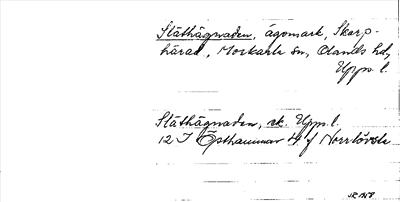 Släthägnaden, ägomark, Skarp-
hårad, Morkarla sn, Olands hd,
Upps. l.
Släthägnaden, ek. Upps. l.
12 I Östhammar 4 f Norrlövsta